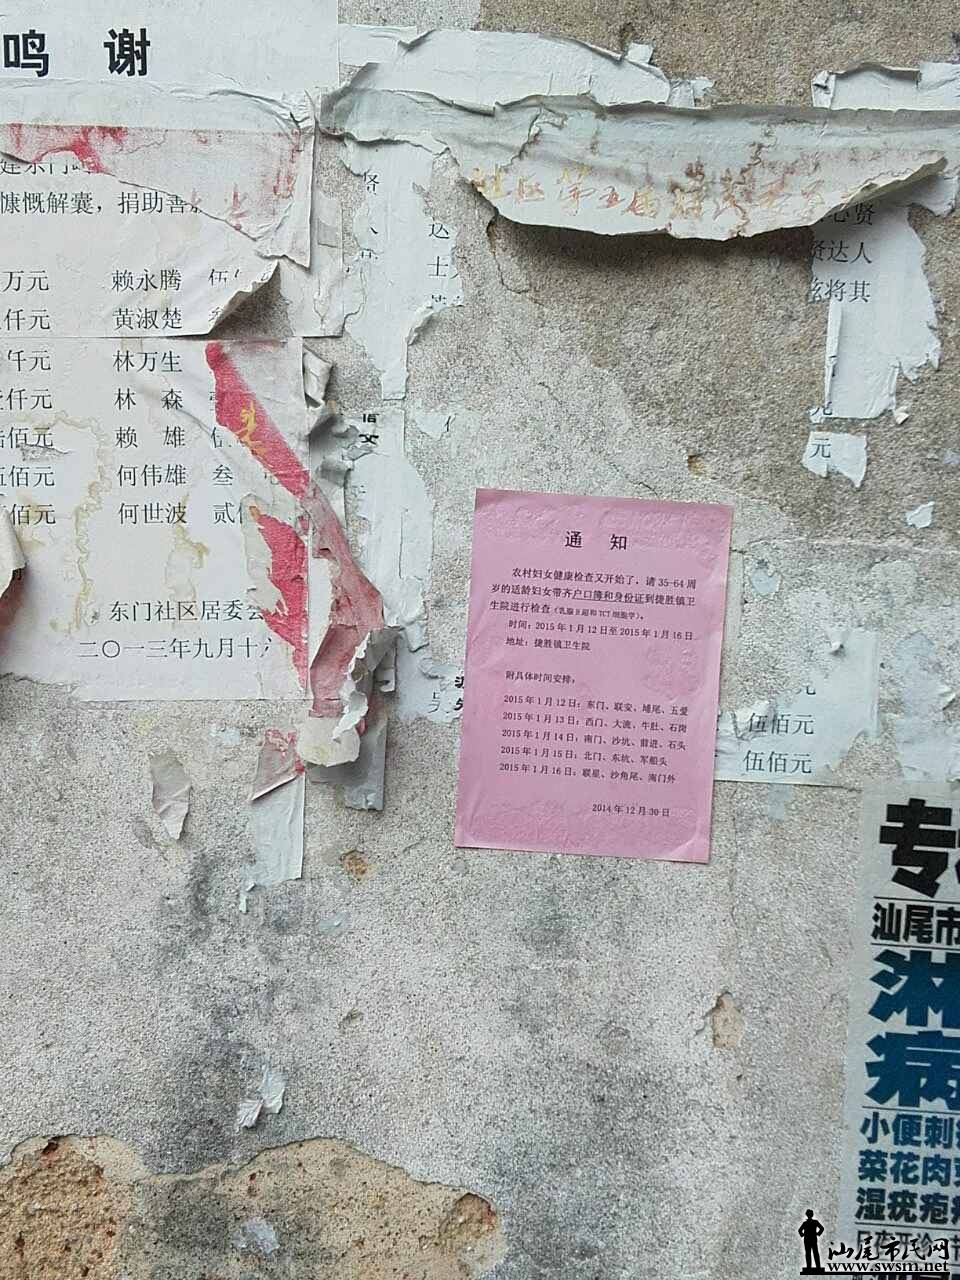 鸣 谢
慷慨解囊，捐助善
万元 赖永腾
仟元 黄淑楚
仟元 林万生
仟元 林 森
佰元 赖 雄
伍佰元 何伟雄 叁
佰元 何世波 贰
东门社区居委会
二〇一三年九月十
贤
达
士
社区第五届
心贤
贤达人
将其
元
元
通 知
农村妇女健康检查又开始了，请 35-64 周
岁的适龄妇女带齐户口簿和身份证到捷胜镇卫
生院进行检查（乳腺B超和TCT细胞学）。
时间：2015 年 1 月 12 日至 2015 年 1 月 16 日
地址：捷胜镇卫生院
附具体时间安排：
2015 年 1 月 12 日：东门、联安、埔尾、五爱
2015 年 1 月 13 日：西门、大流、牛肚、石岗
2015 年 1 月 14 日：南门、沙坑、前进、石头
2015 年 1 月 15 日：北门、东坑、军船头
2015 年 1 月 16 日：联星、沙角尾、南门外
2014 年 12 月 30 日
伍佰元
伍佰元
专
汕尾市
淋
病
小便刺
菜花肉
湿疣疱
汕尾市民网
www.swsm.net